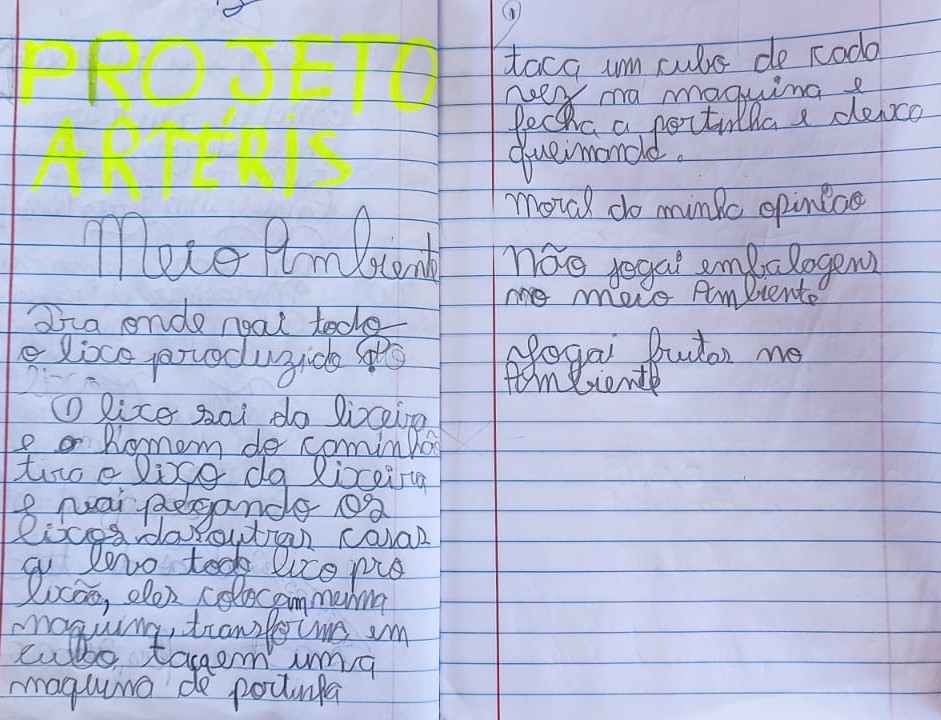 PROJETO
ARTÉRIS
Meio Ambiente
Pra onde vai todo
o lixo produzido
O lixo sai da lixeira
e o homem do caminhão
tira o lixo da lixeira
e vai pegando os
lixos das outras casas
ai leva todo lixo pro
lixão, eles colocam numa
maquina, transforma em
cubo, tacem uma
maquina de portinha
taca um cubo de cada
vez na maquina e
fecha a portinha e deixa
queimando.
Moral da minha opinião
Não jogai embalagens
no meio Ambiente
Jogai frutas no
Ambiente